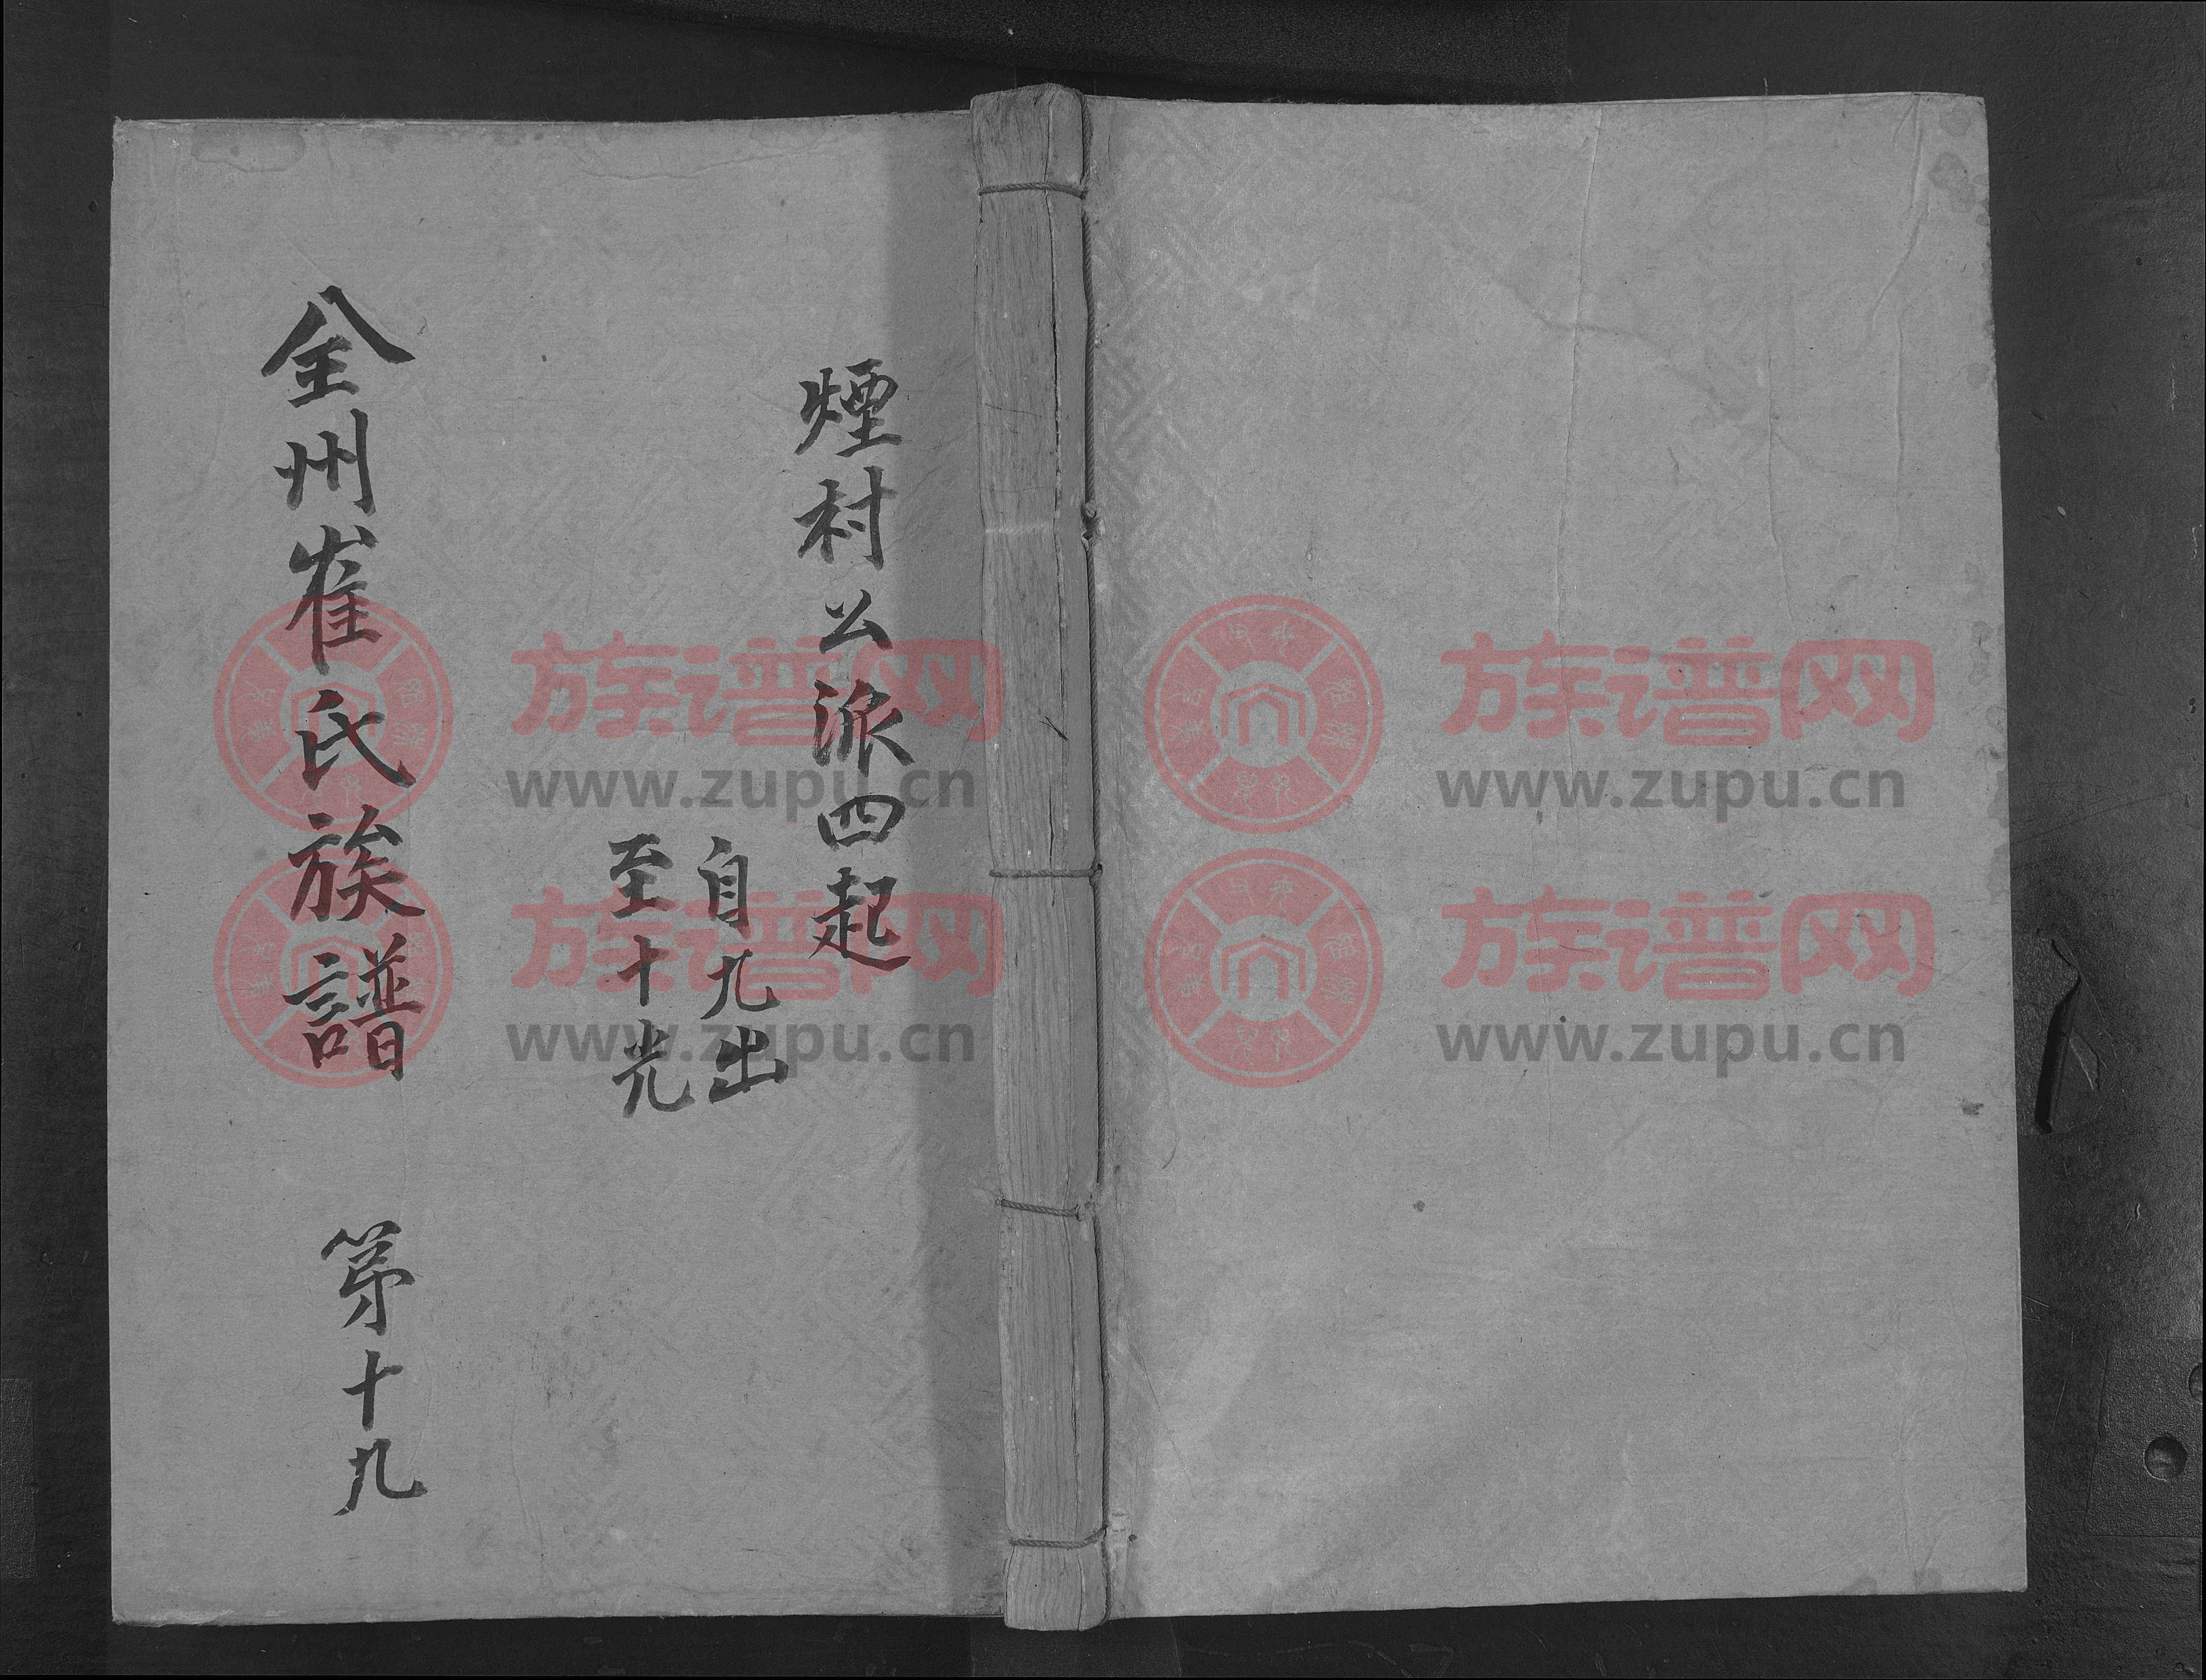 煙村公派四起
自九出
至十光
全州崔氏族譜 第十九
族谱网
www.zupu.cn
族谱网
www.zupu.cn
族谱网
www.zupu.cn
族谱网
www.zupu.cn